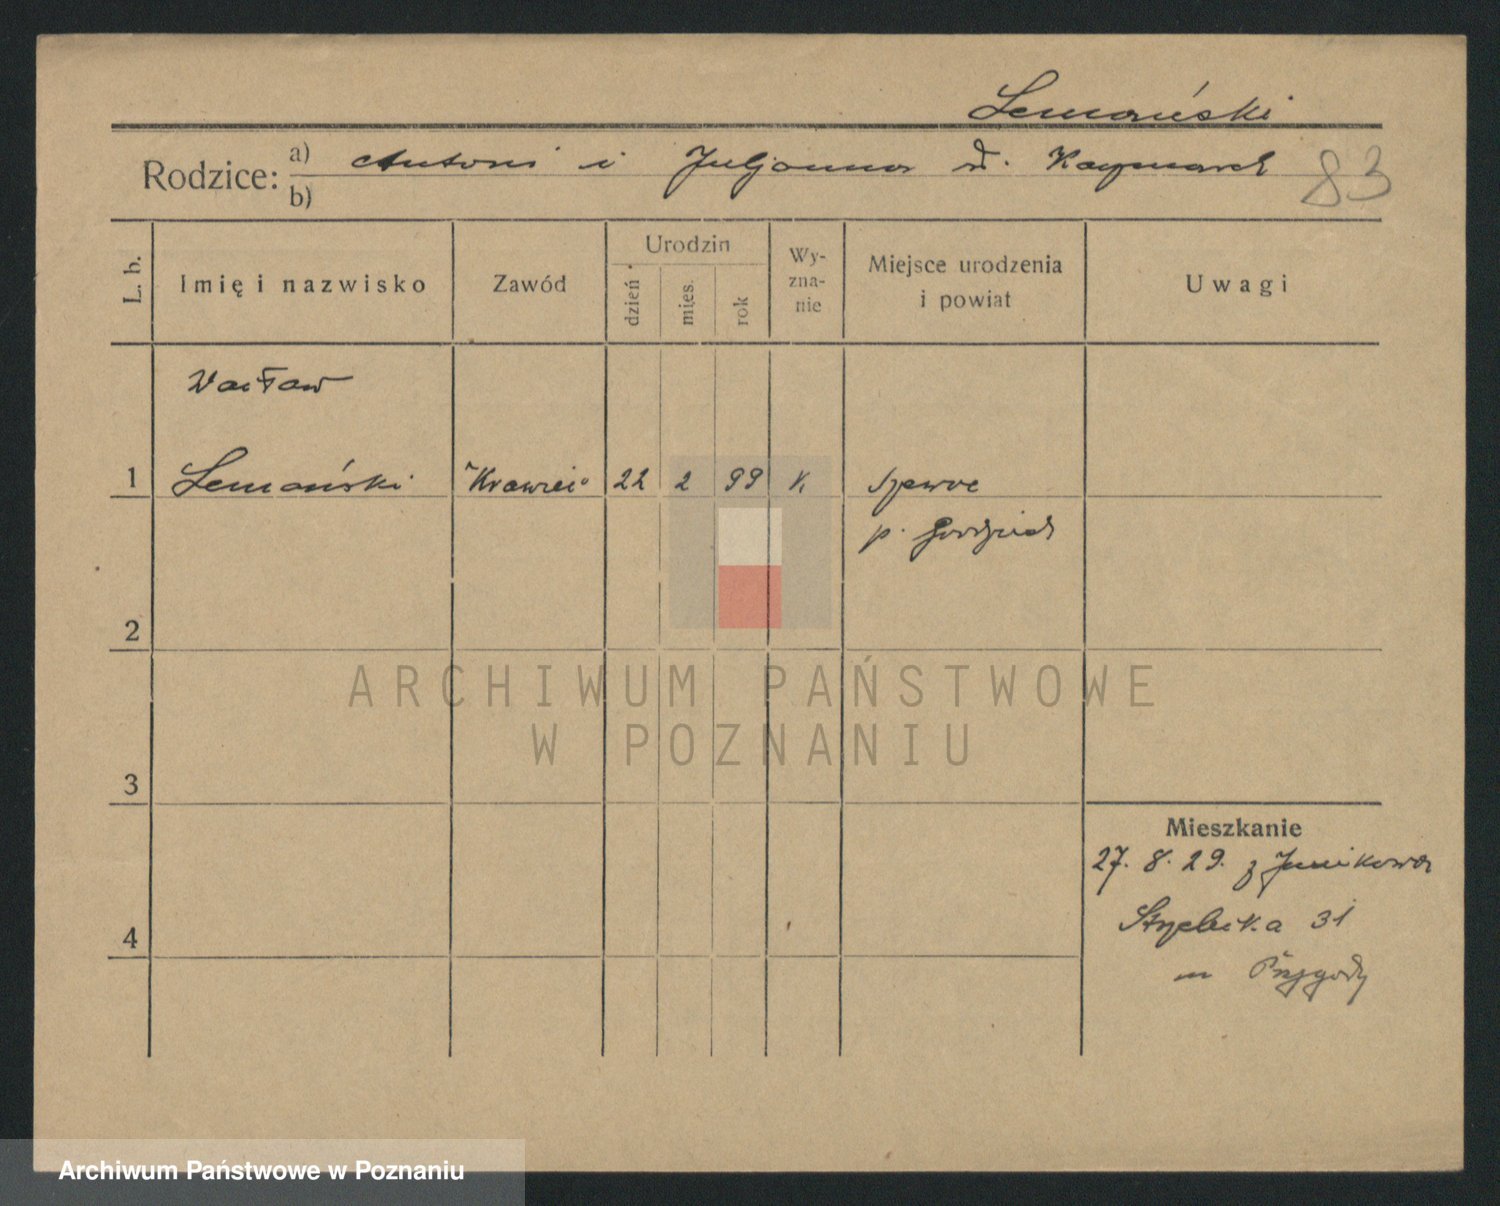 Lemański
Rodzice: a) Antoni i Juljanna d. Kaczmarek
b)
83
L. b. Imię i nazwisko Zawód Urodzin dzień mies. rok Wy-zna-nie Miejsce urodzenia i powiat Uwagi
Wacław
1 Lemański "Krawiec" 22 2 99 K. Szewce
p. Grodzisk
2
ARCHIWUM PAŃSTWOWE
W POZNANIU
3
Mieszkanie
27. 8. 29. z Junikowa
4
31
Przygody
Archiwum Państwowe w Poznaniu